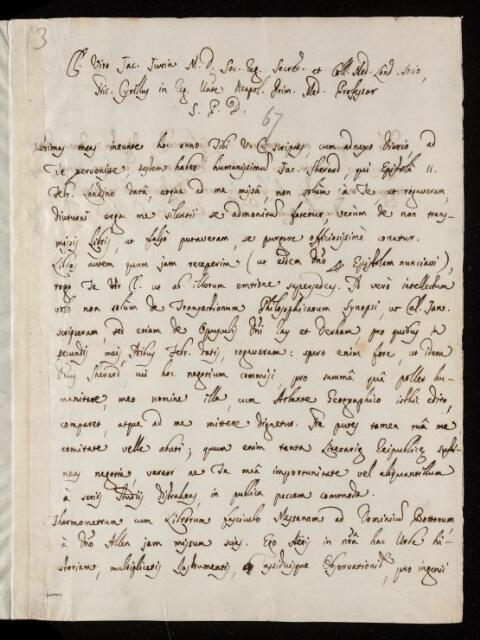 3
Cl. Viro Jac. Jurin M. D. Soc. Reg. Secret. et Coll. Med. Lond. Socio,
Nic. Cyrillus in Reg. Univ. Neapol. Prim. Med. Professor
S. P. D.
67
meas ineunte hoc anno Tibi V. C. scriptas, cum adnexo Diario ad
Te pervenisse testem habeo humanissimum Jac. Sherard, qui Epistola 11.
Febr. Londino data, atque ad me missa non solum a Te ut rogaveram,
diuturni erga me silentii se admonitum fatetur verum de non trans-
missis libris, ut falso putaveram, se purgare officiosissime conatur.
Libros autem quum jam receperim (ut eidem Dno Epistolam nunciavi),
rogo Te Vir Cl. ut ab illorum emtione supersedeas. Id vero intellectum
volo non solum de Transactionum Philosophicarum Synopsi ut Cal. Janu.
scripseram, sed etiam de Opusculis Dni Ray et Derham pro quibus
secundis meis Febr. datis, rogaveram: spero enim fore, ut idem
Dnus Sherard cui hoc negotium commisi, pro summa qua pollet hu-
manitate, meo nomine illa, cum Atlante Geographico isthic edito,
comparet, atque ad me mittere dignetur. Ne putes tamen tua me
comitate velle abuti; quum enim tanta Literariae Reipublicae susti-
neas negotia, vereor ne Te mea importunitate vel aliquantillum
a seriis studiis distrahens, in publica peccem commoda.
Thermometrum cum Librorum fasciculo Messanam ad Dominicum Bottonum
a Dno Allen jam missum scias. Ego Aeris in nra hac Urbe hi-
storiam, multiplicatis Instrumentis, assiduisque Observationibus, pro ingenii